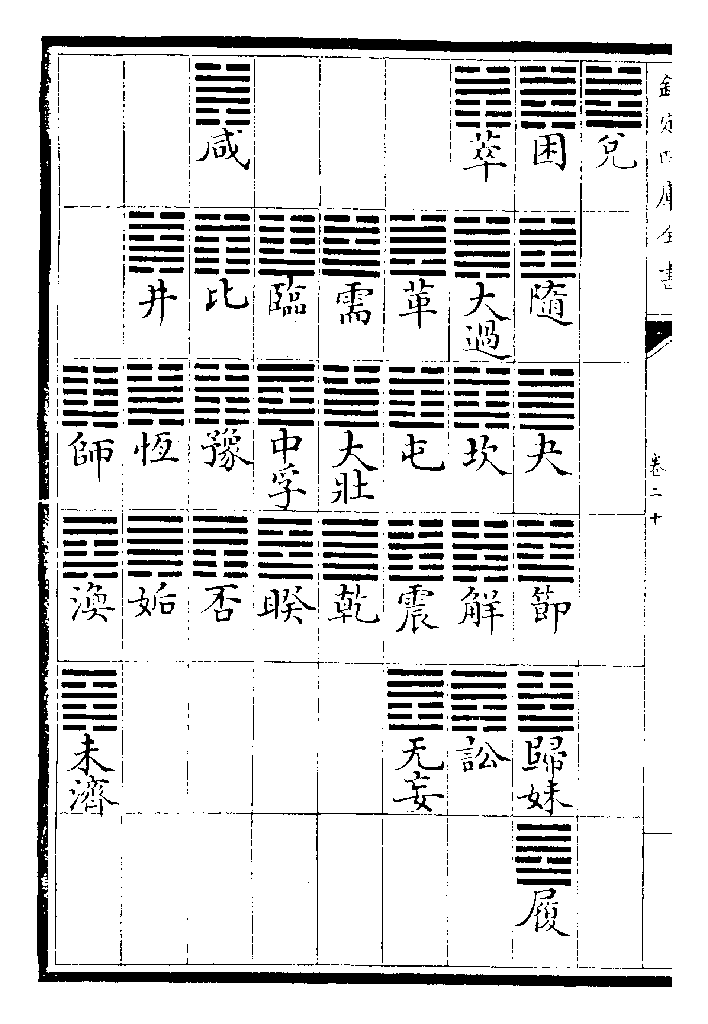 欽定四庫全書
卷二十
兌
困
隨
夬
節
歸妹
履
萃
大過
坎
解
訟
革
屯
震
无妄
需
大壯
乾
臨
中孚
睽
咸
比
豫
否
井
恆
姤
師
渙
未濟